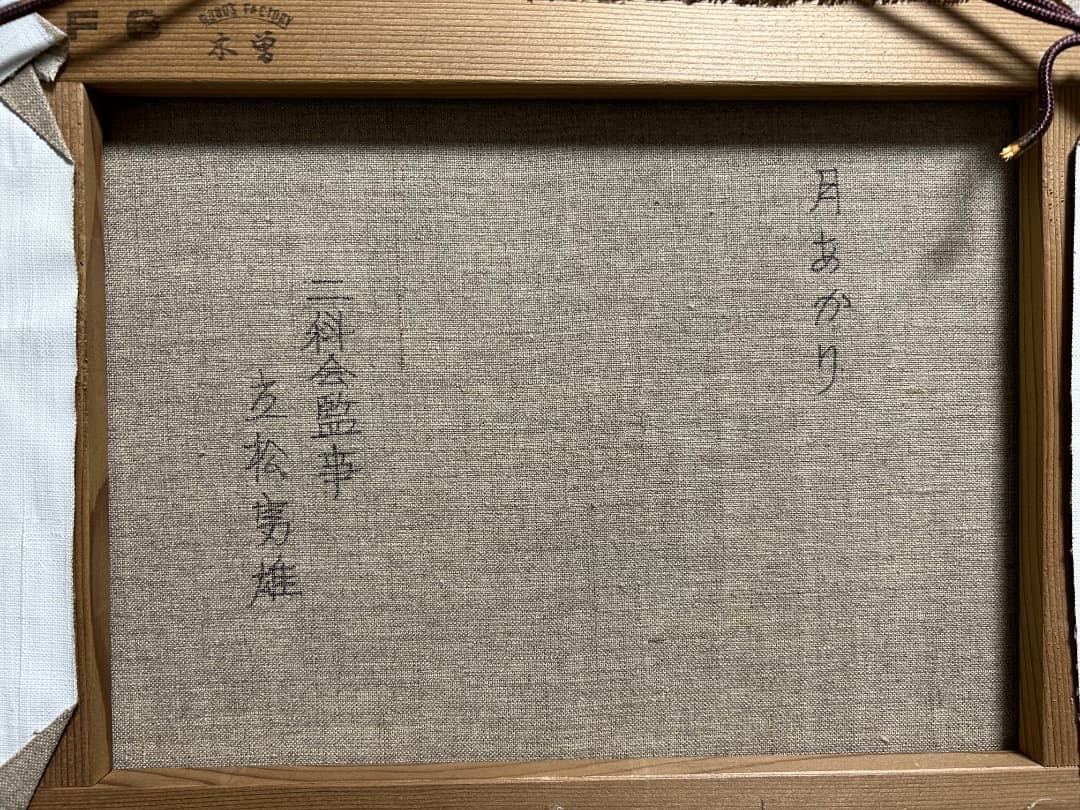 F 6
FACTORY
木曽
月あかり
二科会監事
立松勇雄